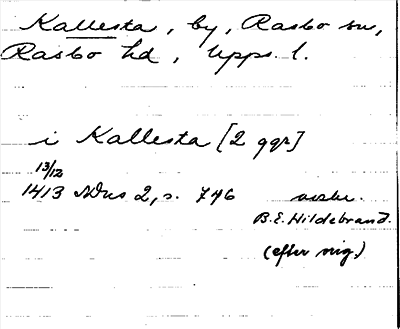 Kallesta, by, Rasbo sn,
Rasbo hd, Upps. l.
i Kallesta [2 ggr]
13/12
1413 NDus 2, s. 746 avskr.
B.E. Hildebrand.
(efter orig.)